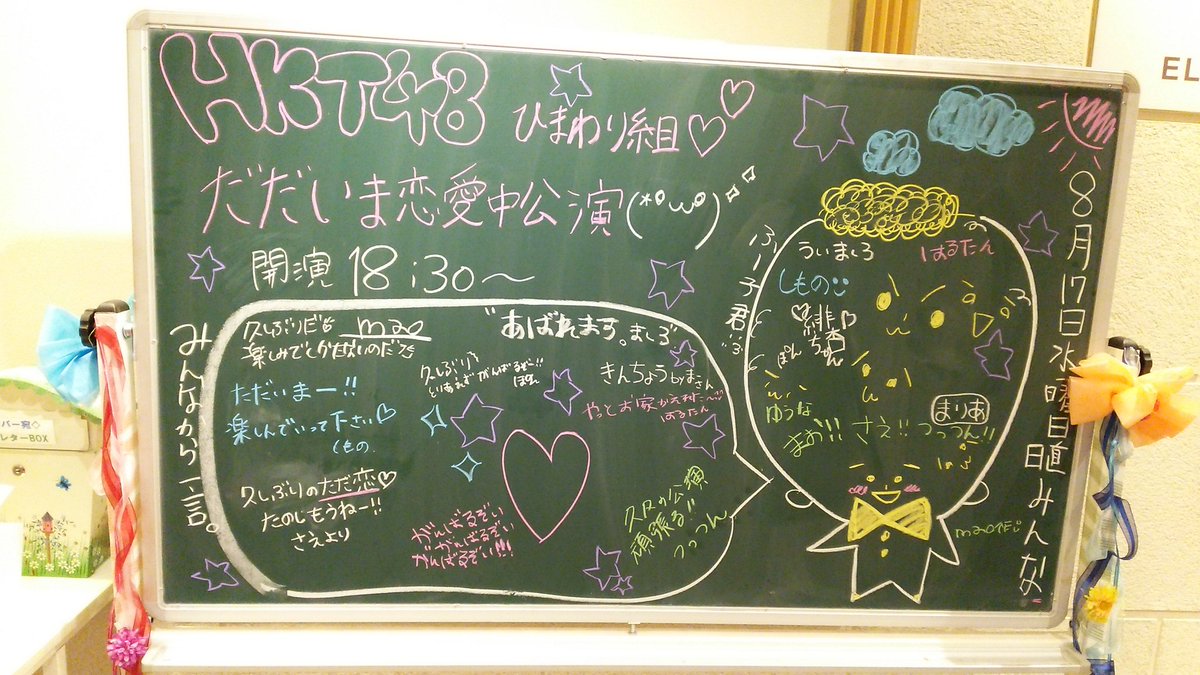 HKT48
ひまわり組♡♡
だだいま恋愛中公演(*°ω°)
開演 18:30〜
8月17日水曜日
みんな
みんなから一言。
久しぶりだぁ mao
ただいまー!!
楽しんでいって下さい♡
しもの
久しぶりのただ恋♡
たのしもうねー!!
さえより
久しぶり
がんばるぞー!!
ぽん
"あばれます。ましろ
きんちょう by まさん
やっとお家
はるたん
がんばるぞい
がんばるぞい
がんばるぞい!!!
久々の公演
頑張る!!
つっつん
ふー子君
ういましろ
はるたん
しもの
ちゃん
ぽん
ゆうな
まりあ
まお!! さえ!! つっつん!!
EL
バー宛◇
レターBOX